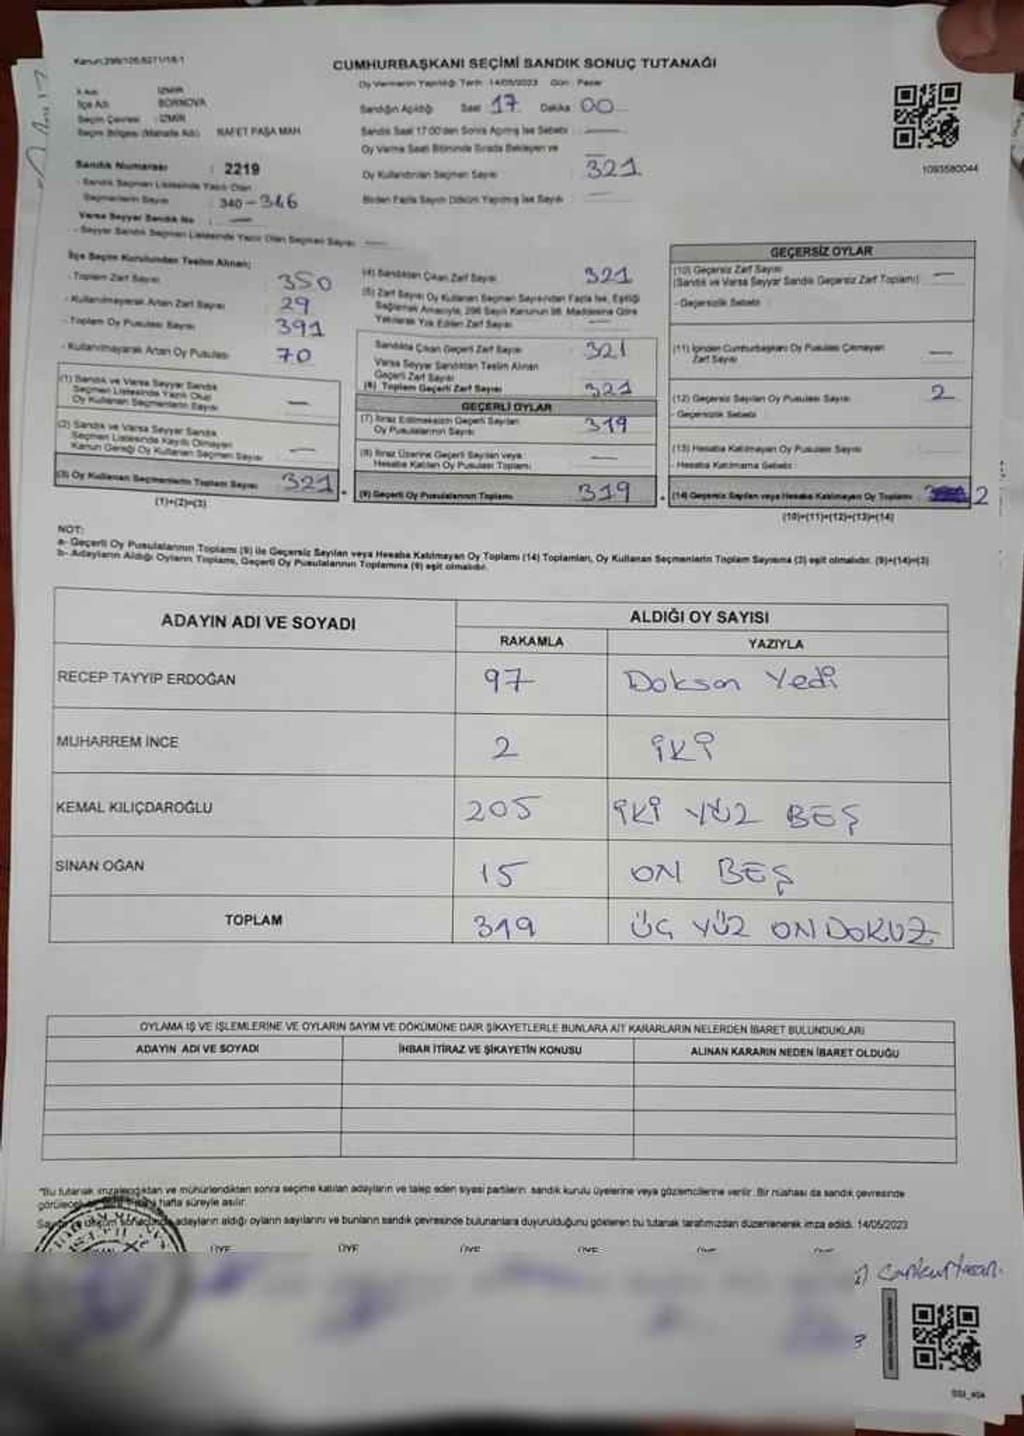 Kanun:298/105,6271/18/1
CUMHURBAŞKANI SEÇİMİ SANDIK SONUÇ TUTANAĞI
Oy Vermenin Yapıldığı Tarih : 14/05/2023 Gün : Pazar
İl Adı : İZMİR
İlçe Adı : BORNOVA
Seçim Çevresi : İZMİR
Seçim Bölgesi (Mahalle Adı) : RAFET PAŞA MAH
Sandığın Açıldığı Saat 17 Dakika 00
Sandık Saat 17:00'den Sonra Açılmış İse Sebebi :
Oy Verme Saati Bitiminde Sırada Bekleyen ve
Oy Kullandırılan Seçmen Sayısı 321
Birden Fazla Sayım Döküm Yapılmış İse Sayısı :
1093580044
Sandık Numarası : 2219
- Sandık Seçmen Listesinde Yazılı Olan
Seçmenlerin Sayısı : 340 - 346
Varsa Seyyar Sandık No : —
- Seyyar Sandık Seçmen Listesinde Yazılı Olan Seçmen Sayısı : —
İlçe Seçim Kurulundan Teslim Alınan;
- Toplam Zarf Sayısı 350
- Kullanılmayarak Artan Zarf Sayısı 29
- Toplam Oy Pusulası Sayısı 391
- Kullanılmayarak Artan Oy Pusulası 70
(1) Sandık ve Varsa Seyyar Sandık
Seçmen Listesinde Yazılı Olup
Oy Kullanan Seçmenlerin Sayısı —
(2) Sandık ve Varsa Seyyar Sandık
Seçmen Listesinde Kayıtlı Olmayan
Kanun Gereği Oy Kullanan Seçmen Sayısı —
(3) Oy Kullanan Seçmenlerin Toplam Sayısı 321
(1)+(2)=(3)
(4) Sandıktan Çıkan Zarf Sayısı 321
(5) Zarf Sayısı Oy Kullanan Seçmen Sayısından Fazla İse, Eşitliği
Sağlamak Amacıyla, 298 Sayılı Kanunun 98. Maddesine Göre
Yakılarak Yok Edilen Zarf Sayısı —
Sandıkta Çıkan Geçerli Zarf Sayısı 321
Varsa Seyyar Sandıktan Teslim Alınan
Geçerli Zarf Sayısı
(6) Toplam Geçerli Zarf Sayısı 321
GEÇERLİ OYLAR
(7) İtiraz Edilmeksizin Geçerli Sayılan
Oy Pusulalarının Sayısı 319
(8) İtiraz Üzerine Geçerli Sayılan veya
Hesaba Katılan Oy Pusulası Toplamı —
(9) Geçerli Oy Pusulalarının Toplamı 319
GEÇERSİZ OYLAR
(10) Geçersiz Zarf Sayısı —
(Sandık ve Varsa Seyyar Sandık Geçersiz Zarf Toplamı)
- Geçersizlik Sebebi :
(11) İçinden Cumhurbaşkanı Oy Pusulası Çıkmayan
Zarf Sayısı —
(12) Geçersiz Sayılan Oy Pusulası Sayısı 2
- Geçersizlik Sebebi :
(13) Hesaba Katılmayan Oy Pusulası Sayısı
- Hesaba Katılmama Sebebi :
(14) Geçersiz Sayılan veya Hesaba Katılmayan Oy Toplamı 2
(10)+(11)+(12)+(13)=(14)
NOT:
a- Geçerli Oy Pusulalarının Toplamı (9) ile Geçersiz Sayılan veya Hesaba Katılmayan Oy Toplamı (14) Toplamları, Oy Kullanan Seçmenlerin Toplam Sayısına (3) eşit olmalıdır. (9)+(14)=(3)
b- Adayların Aldığı Oyların Toplamı, Geçerli Oy Pusulalarının Toplamına (9) eşit olmalıdır.
ADAYIN ADI VE SOYADI
ALDIĞI OY SAYISI
RAKAMLA YAZIYLA
RECEP TAYYİP ERDOĞAN 97 Doksan Yedi
MUHARREM İNCE 2 İKİ
KEMAL KILIÇDAROĞLU 205 İKİ YÜZ BEŞ
SİNAN OĞAN 15 ON BEŞ
TOPLAM 319 ÜÇ YÜZ ON DOKUZ
OYLAMA İŞ VE İŞLEMLERİNE VE OYLARIN SAYIM VE DÖKÜMÜNE DAİR ŞİKAYETLERLE BUNLARA AİT KARARLARIN NELERDEN İBARET BULUNDUKLARI
ADAYIN ADI VE SOYADI İHBAR İTİRAZ VE ŞİKAYETİN KONUSU ALINAN KARARIN NEDEN İBARET OLDUĞU
*Bu tutanak imzalandıktan ve mühürlendikten sonra seçime katılan adayların ve talep eden siyasi partilerin sandık kurulu üyelerine veya gözlemcilerine verilir. Bir nüshası da sandık çevresinde
hafta süreyle asılır.
adayların aldığı oyların sayılarını ve bunların sandık çevresinde bulunanlara duyurulduğunu gösteren bu tutanak tarafımızdan düzenlenerek imza edildi. 14/05/2023
ÜYE ÜYE ÜYE ÜYE